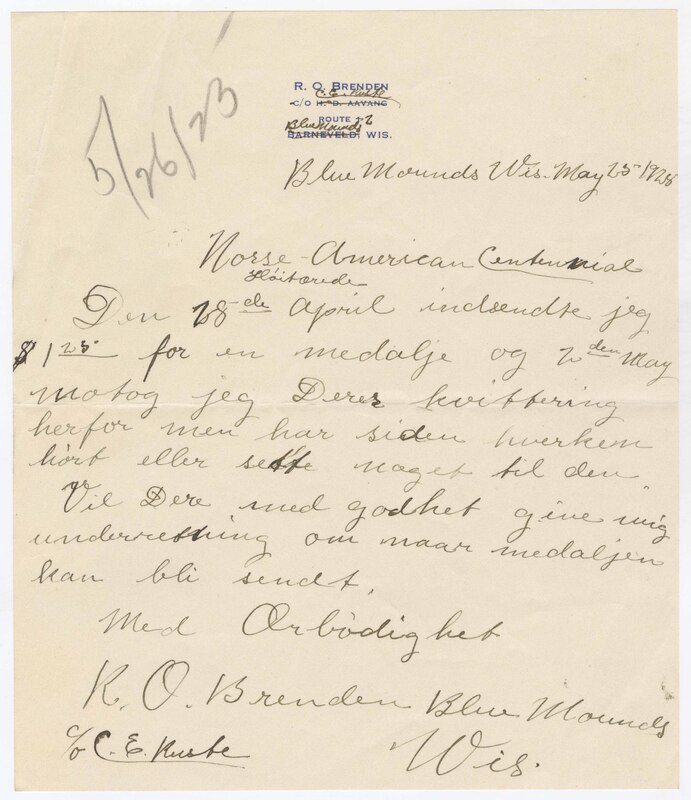 5/26/25
R. O. BRENDEN
C. E. Ruste
C/O H. D. AAVANG
ROUTE 1-2
Blue Mounds
BARNEVELD, WIS.
Blue Mounds Wis. May 25 1925
Norse-American Centennial
Höitærede
Den 28de April indsendte jeg
$1 25 for en medalje og 2den May
motog jeg Deres kvittering
herfor men har siden hverken
hört eller sette noget til den
Vil Dere med godhet give mig
underretning om naar medaljen
kan bli sendt.
Med Ærbödighet
R. O. Brenden Blue Mounds
c/o C. E. Ruste Wis.